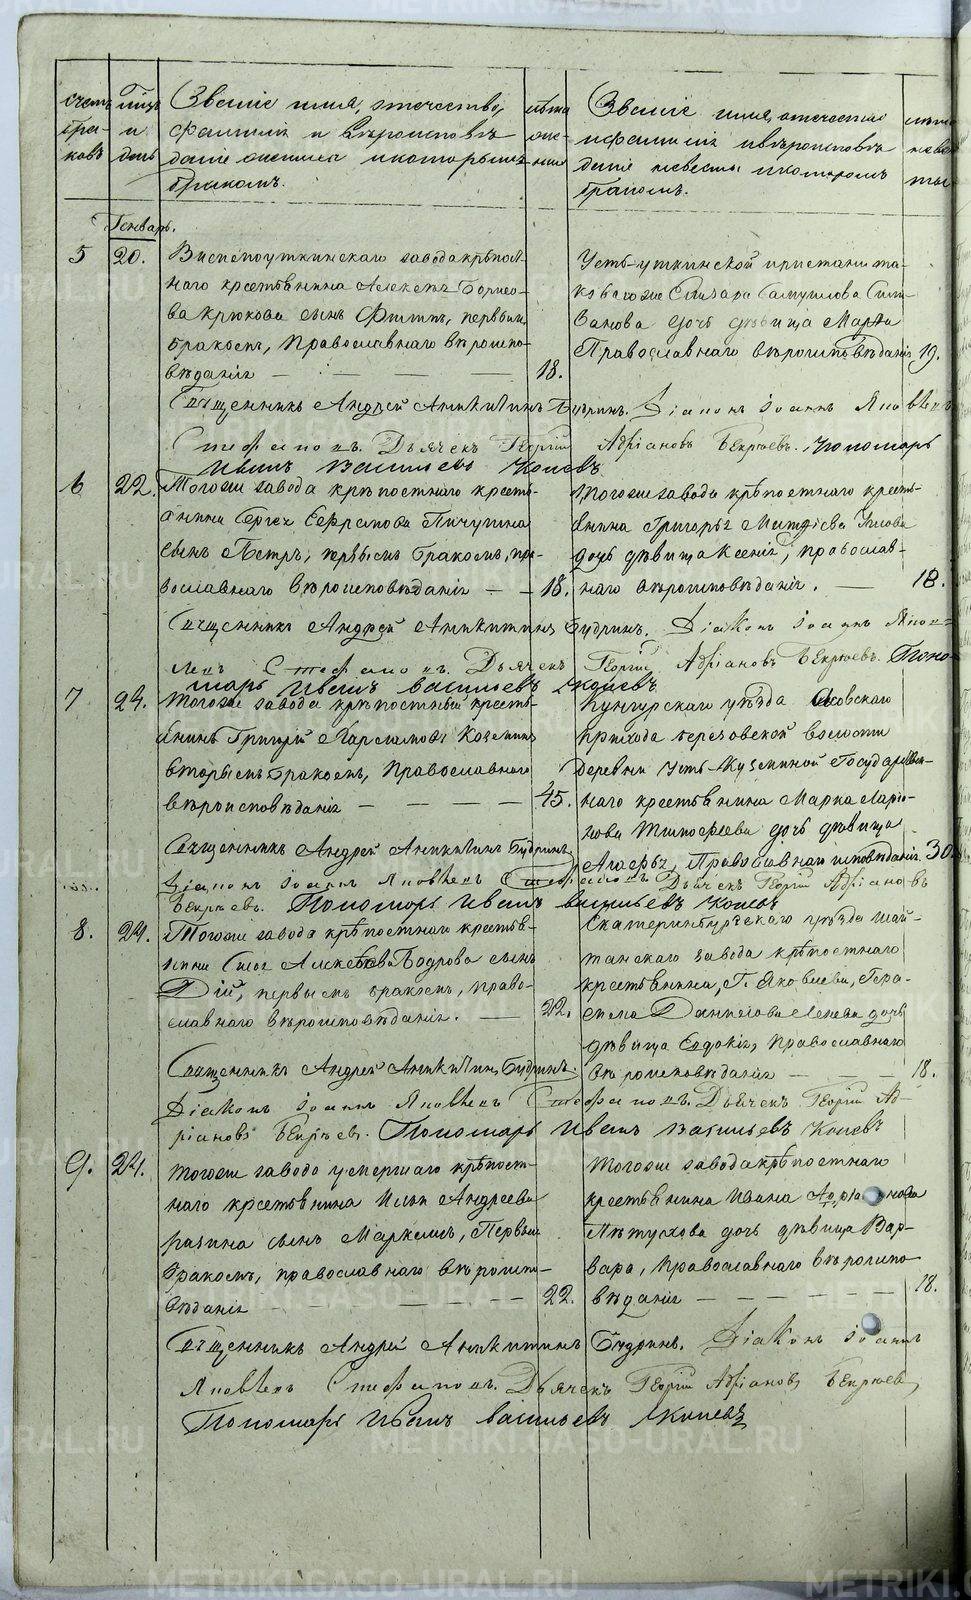 METRIKI.GASO-URAL.RU
счетъ бра-ковъ
мѣц и день
Званіе имя, отечество, фамилія и вѣроисповѣданіе жениха и которымъ бракомъ.
лѣта жениха
Званіе имя, отечество и фамилія и вѣроисповѣданіе невесты и которымъ бракомъ.
Генварь.
5 20.
завода крѣпост-
наго крестьянина Алексея Борисо-
ва Крюкова сынъ Филипъ, первымъ
бракомъ, Православнаго вѣроиспо-
вѣданія 18.
Усть-уткинской пристани та-
коваго же
ванова дочь дѣвица Марѳа
Православнаго вѣроисповѣданія 19.
Священникъ Андрей Аникитинъ Будринъ. Діаконъ Іоаннъ Яковлевъ
Стефановъ. Дьячекъ Георгій Адріановъ Бекрѣевъ. Пономарь
Иванъ Васильевъ
6 22.
Тогоже завода крѣпостнаго кресть-
янина Сергея Ефремова Пичугина
сынъ Петръ, первымъ бракомъ, пра-
вославнаго вѣроисповѣданія 18.
Тогоже завода крѣпостнаго кресть-
янина Григорья
дочь дѣвица Ксенія, православ-
наго вѣроисповѣданія. 18.
Священникъ Андрей Аникитинъ Будринъ. Діаконъ Іоаннъ Яков-
левъ Стефановъ. Дьячекъ Георгій Адріановъ Бекрѣевъ. Поно-
марь Иванъ Васильевъ
7 24.
Тогоже завода крѣпостный кресть-
янинъ Григорій
вторымъ бракомъ, Православнаго
вѣроисповѣданія 45.
Кунгурскаго уѣзда
прихода березовской волости
деревни Усть- Государствен-
наго крестьянина Марка
Тимофеева дочь дѣвица
Православнаго исповѣданія. 30.
Священникъ Андрей Аникитинъ Будринъ
Діаконъ Іоаннъ Яковлевъ Стефановъ Дьячекъ Георгій Адріановъ
Бекрѣевъ. Пономарь Иванъ Васильевъ
8. 24.
Тогоже завода крѣпостнаго крестья-
нина Бодрова сынъ
первымъ бракомъ, право-
славнаго вѣроисповѣданія. 22.
Екатеринбургскаго уѣзда Шай-
танскаго завода крѣпостнаго
крестьянина, Г. Яковлева, Гера-
сима Данилова дочь
дѣвица Евдокія, Православнаго
вѣроисповѣданія 18.
Священникъ Андрей Аникитинъ Будринъ.
Діаконъ Іоаннъ Яковлевъ Стефановъ. Дьячекъ Георгій Ад-
ріановъ Бекрѣевъ. Пономарь Иванъ Васильевъ
9. 24.
Тогоже завода умершаго крѣпост-
наго крестьянина Ильи Андреева
сынъ Маркелъ, Первымъ
бракомъ, православнаго вѣроиспо-
вѣданія 22.
Тогоже завода крѣпостнаго
крестьянина Ивана
Пѣтухова дочь дѣвица Вар-
вара, Православнаго вѣроиспо-
вѣданія 18.
Священникъ Андрей Аникитинъ Будринъ. Діаконъ Іоаннъ
Яковлевъ Стефановъ. Дьячекъ Георгій Адріановъ Бекрѣевъ,
Пономарь Иванъ Васильевъ